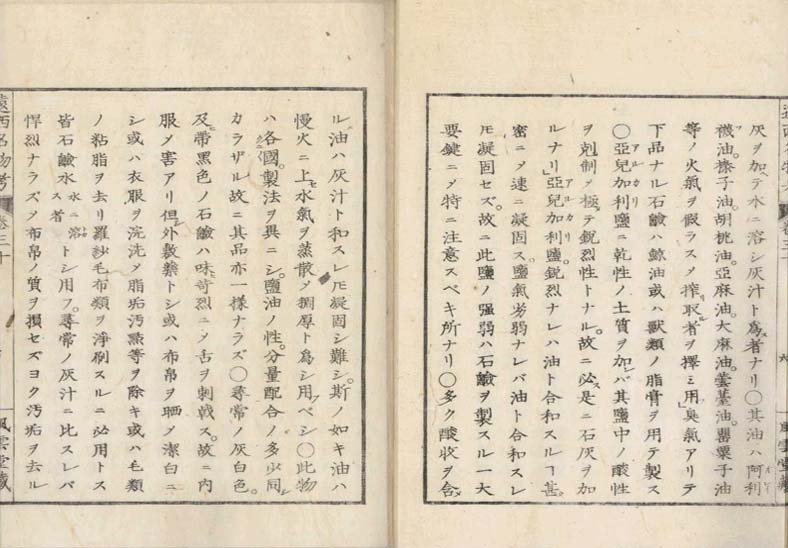 灰ヲ加ヘテ水ニ溶シ灰汁ト爲者ナリ○其油ハ阿利
襪油。榛子油。胡桃油。亞麻油。大麻油。蕓薹油。罌粟子油
等ノ火氣ヲ假ラスメ搾取者ヲ擇ミ用」臭氣アリテ
下品ナル石鹸ハ鯨油或ハ獸類ノ脂膏ヲ用テ製ス
○亞兒加利鹽ニ乾性ノ土質ヲ加ハ其鹽中ノ酸性
ヲ剋制メ極テ銳烈性トナル。故ニ必是ニ石灰ヲ加
ルナリ」亞兒加利鹽。銳烈ナレハ油ト合和スルヿ甚
密ニメ速ニ凝固ス。鹽氣劣弱ナレバ油ト合和スレ
𪜈凝固セズ。故ニ此鹽ノ强弱ハ石鹸ヲ製スル一大
要鍵ニメ特ニ注意スベキ所ナリ○多ク酸收ヲ含
六
風雲堂藏
ル油ハ灰汁ト和スレ𪜈凝固シ難シ。斯ノ如キ油ハ
慢火ニ上セ水氣ヲ蒸散メ稠厚ト爲シ用フベシ○此物
ハ各國。製法ヲ異ニシ。鹽油ノ性。分量配合ノ多少同シ
カラザル故ニ其品亦一樣ナラズ○尋常ノ灰白色。
及帶黑色ノ石鹸ハ味苛烈ニメ舌ヲ刺戟ス。故ニ内
服メ害アリ但外敷藥トシ或ハ布帛ヲ晒メ潔白ニ
シ或ハ衣服ヲ浣洗メ脂垢汚點等ヲ除キ或ハ毛類
ノ粘脂ヲ去リ羅紗毛布類ヲ淨刷スルニ必用トス
皆石鹸水水ニ溶ス者トシ用フ。尋常ノ灰汁ニ比スレバ
悍烈ナラズメ布帛ノ質ヲ損セズヨク汚垢ヲ去ル
遠西名物考
卷三十
風雲堂藏